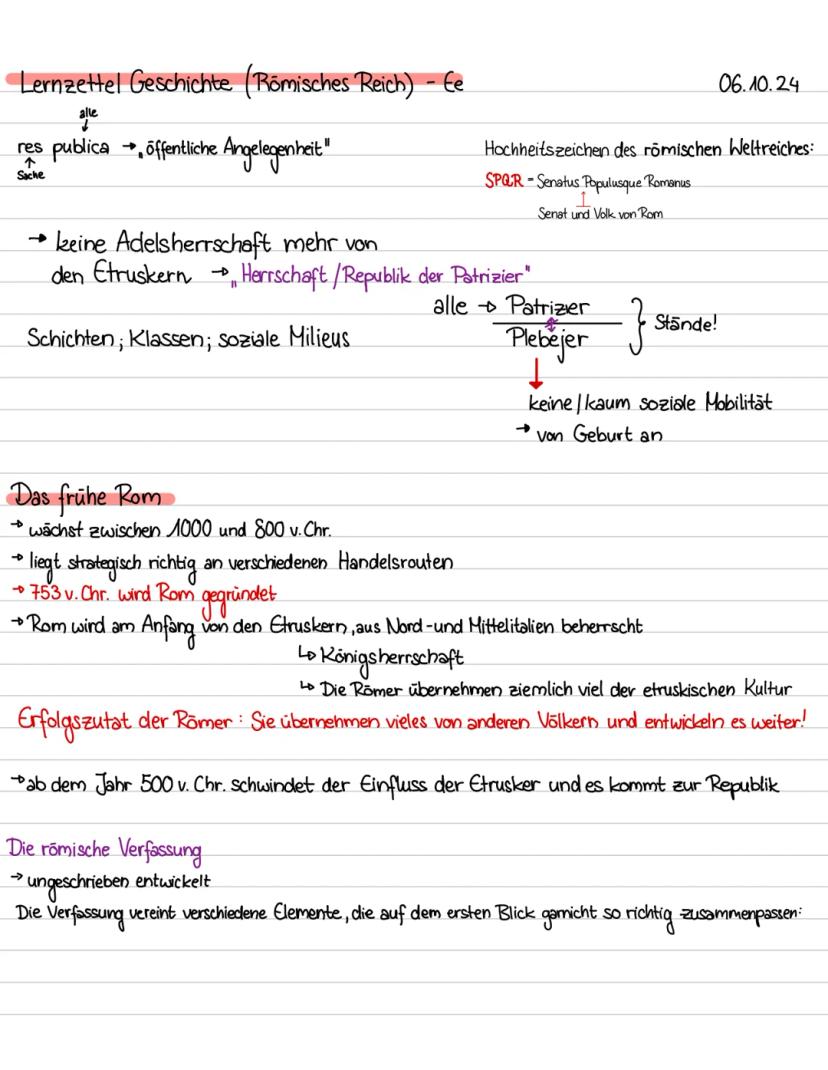 Lernzettel Geschichte (Römisches Reich) - Ee
06.10.24
alle
res publica → „öffentliche Angelegenheit"
Sache
Hochheitszeichen des römischen Weltreiches:
SPQR - Senatus Populusque Romanus
Senat und Volk von Rom
→ keine Adelsherrschaft mehr von
den Etruskern → „Herrschaft/Republik der Patrizier"
alle → Patrizier
Plebejer
Stände!
Schichten; Klassen; soziale Milieus
keine/kaum soziale Mobilität
→ von Geburt an
Das frühe Rom
→ wächst zwischen 1000 und 800 v. Chr.
→ liegt strategisch richtig an verschiedenen Handelsrouten
→ 753 v. Chr. wird Rom gegründet
→ Rom wird am Anfang von den Etruskern, aus Nord- und Mittelitalien beherrscht
↳ Königsherrschaft
↳ Die Römer übernehmen ziemlich viel der etruskischen Kultur
Erfolgszutat der Römer: Sie übernehmen vieles von anderen Völkern und entwickeln es weiter!
→ ab dem Jahr 500 v. Chr. schwindet der Einfluss der Etrusker und es kommt zur Republik
Die römische Verfassung
→ ungeschrieben entwickelt
Die Verfassung vereint verschiedene Elemente, die auf dem ersten Blick garnicht so richtig zusammenpassen: